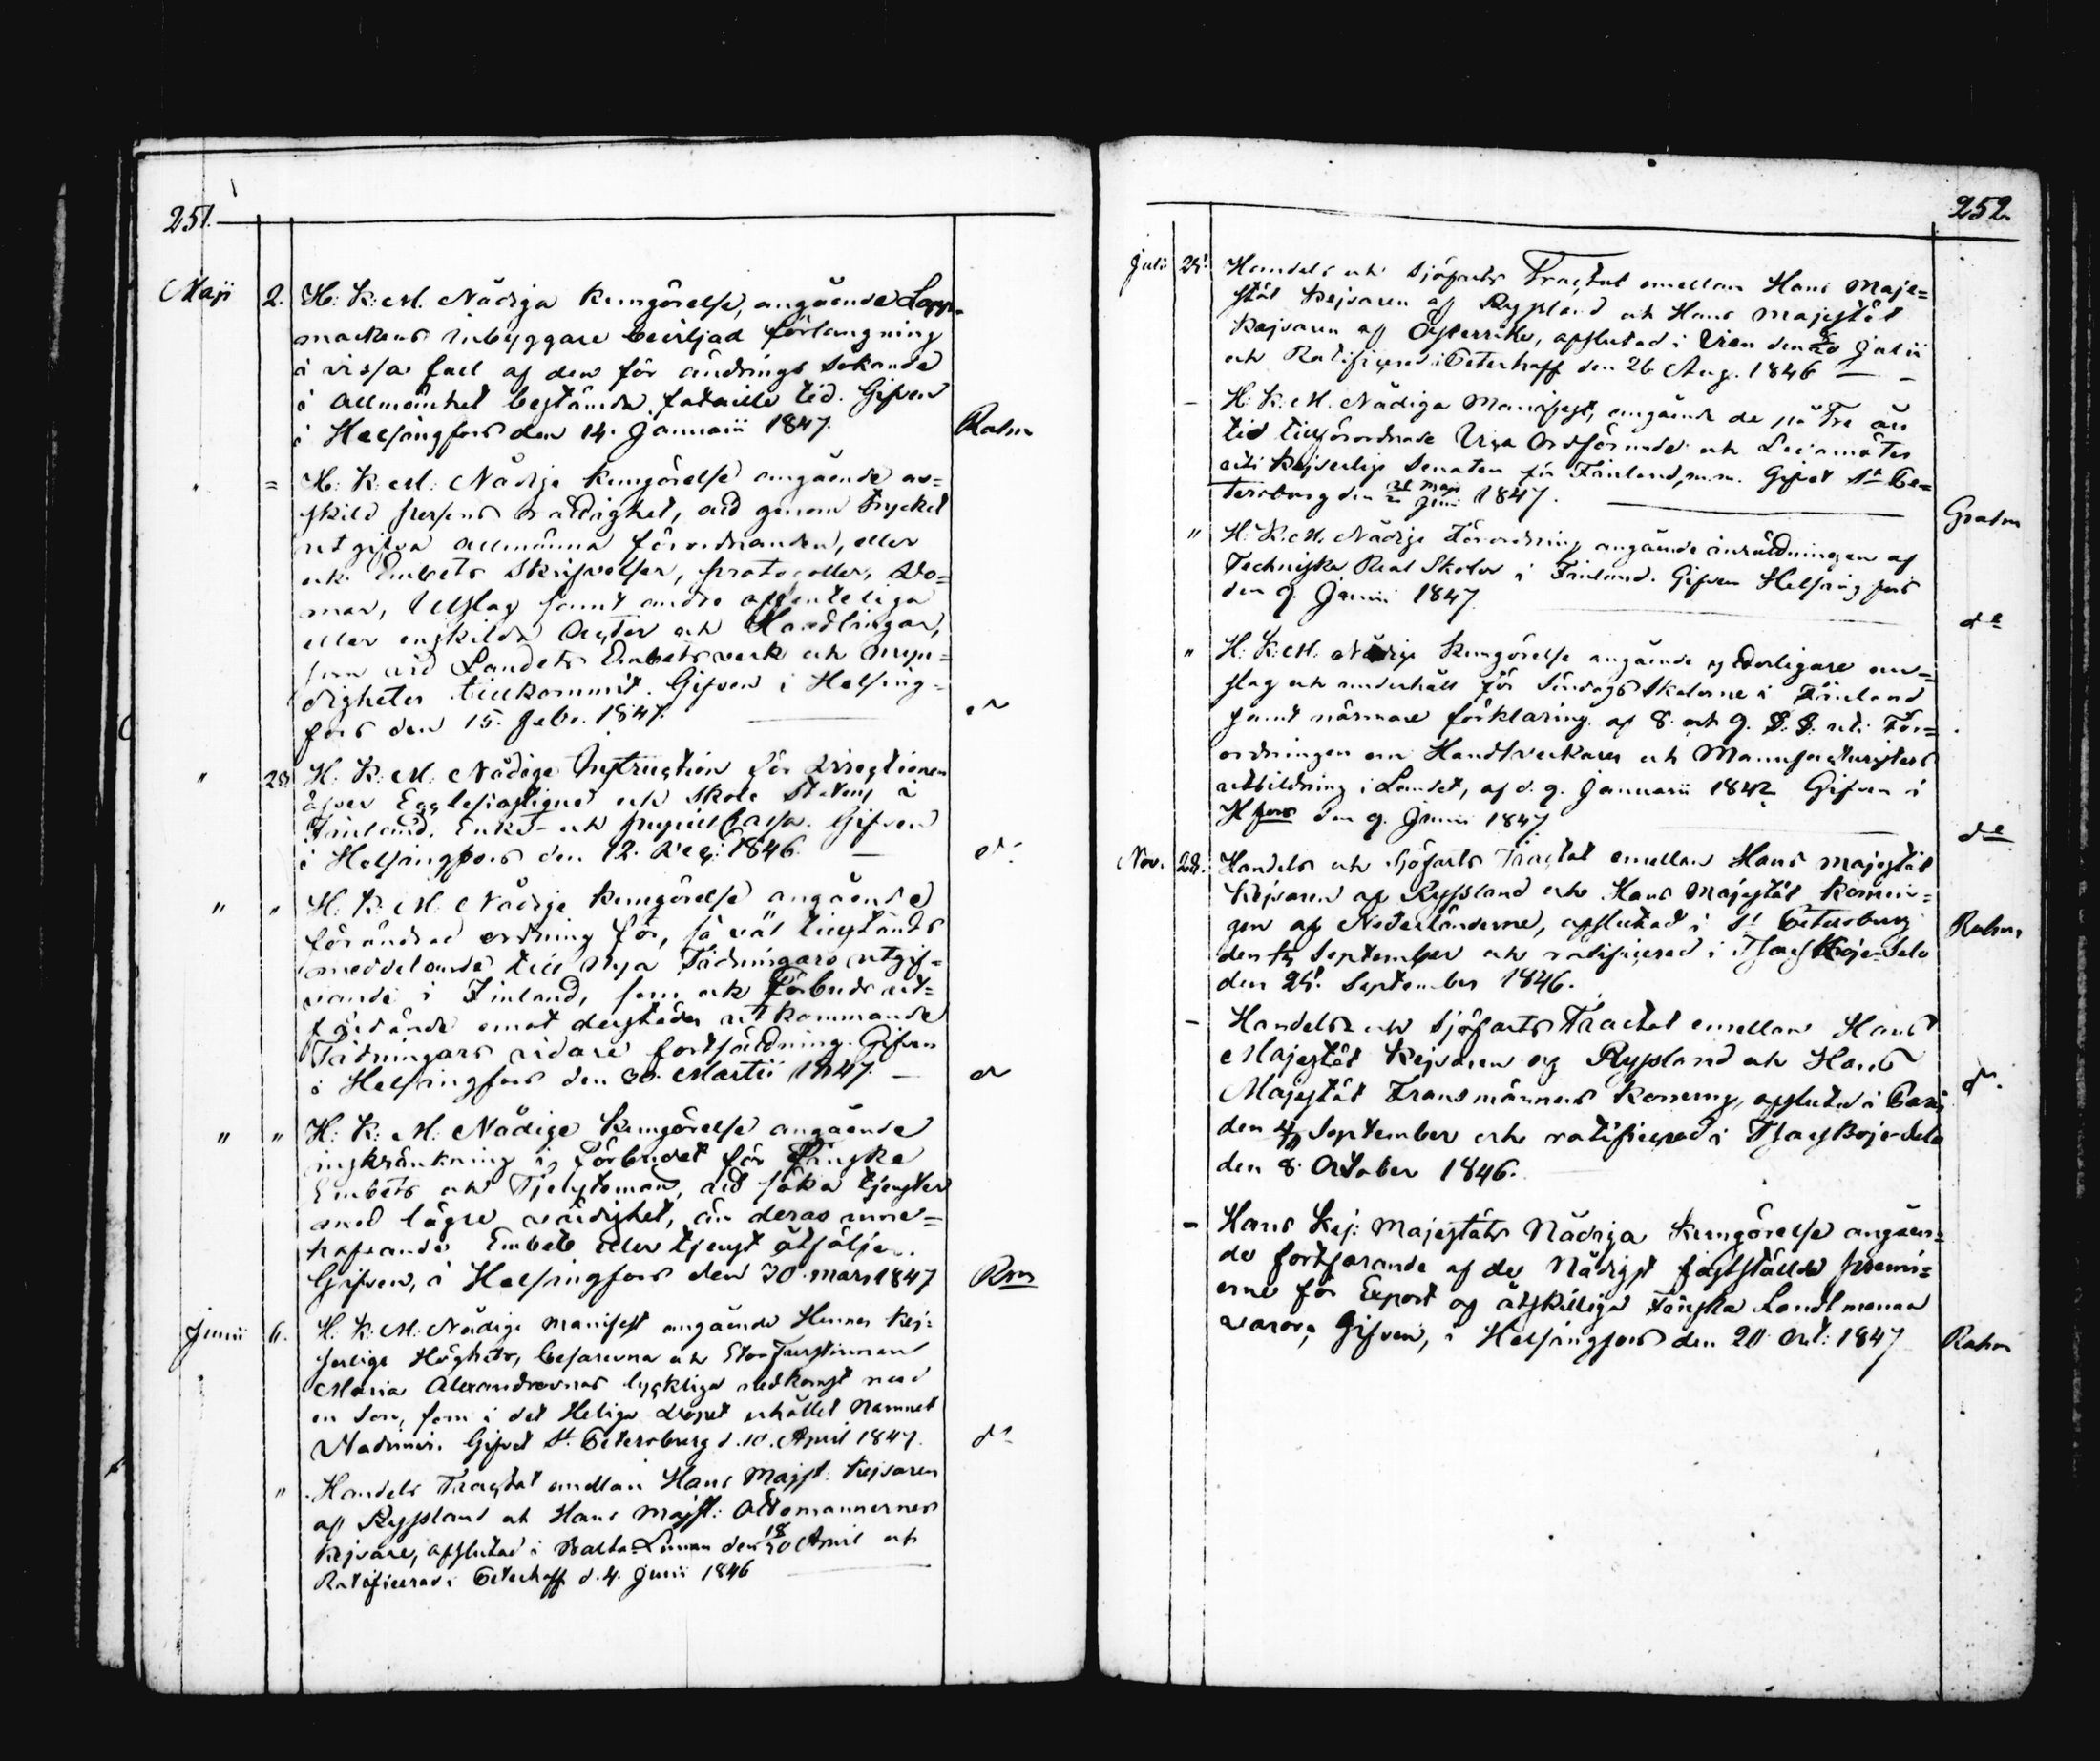 251.
Maji 2. H: K: M. Nådiga Kungörelse, angående Lapp-
markens inbyggare beviljad förlängning
i vissa fall af den för ändrings sökande
i allmänhet bestämda fataille tid. Gifven
i Helsingfors den 14. Januarii 1847. Rahm
" = H: K: M: Nådige Kungörelse angående en=
skild persons rättighet, att genom trycket
utgifva allmänna förordnanden, eller
och Embets Skrifvelser, protocoller, Do=
mar, Utslag samt andre offenteliga
eller enskilda Acter och Handlingar,
som vid Landets Embetsverk och myn=
digheter tillkommit. Gifven i Helsing=
fors den 15. Febr. 1847.
" 23 H. K: M. Nådige Instruction för Directionen
öfver Ecclesiastique och Skole Statens i
Finland, Enke- och pupill Cassa. Gifven
i Helsingfors den 12. Dec: 1846. — do
" " H: K: M: Nådige Kungörelse angående
förändrad ordning för, så väl tillstånds
meddelande till nya Tidningars utgif=
vande i Finland, som ock Förbuds ut=
färdande emot derstädes utkommande
Tidningars vidare fortsättning. Gifven
i Helsingfors den 30. Martii 1847. — do
" " H: K: M: Nådige Kungörelse angående
inskränkning i Förbudet för Finska
Embets och Tjenstemän, att söka tjenster
med lägre värdighet, än deras inne=
hafvande Embete eller tjenst åtfölje.
Gifven, i Helsingfors den 30. mars 1847 Rm
Junii 6. H. K: M: Nådige Manifest angående Hennes Kej=
serliga Höghets, Cesarevna och Storfurstinnan
Maria Alexandrovnas lyckliga nedkomst med
en Son, som i det Heliga dopet erhållet Namnet
Vladimir. Gifvet St. Petersburg d. 10. April 1847. do
" Handels Tractat emellan Hans Majst: Kejsaren
af Ryssland och Hans Majst: Ottomannernes
Kejsare, afslutad i Balta-Liman den 18/30 April och
Ratificerad i Peterhoff d. 4. Junii 1846
252.
Julii 25. Handels och Sjöfarts Tractat emellan Hans Maje=
stät Kejsaren af Ryssland och Hans Majestät
Kejsaren af Österrike, afslutad i Wien den Julii
och Ratificerad i Peterhoff den 26 Aug. 1846 —
— H: K: M. Nådiga Manifest, angående de på Tre års
tid tillförordnade Vice Ordförande och Ledamöter
uti Kejserlige Senaten för Finland, m.m. Gifvet St Pe=
tersburg den 21 Maj/2 Juni 1847. Grahm
" H: K: M. Nådige Förordning angående inrättningen af
Techniska Real Skolor i Finland. Gifven Helsingfors
den 9. Junii 1847. do
" H: K: M. Nådige Kungörelse angående ytterligare an=
slag och underhåll för Söndags Skolorne i Finland
samt närmare förklaring af 8. och 9. §. §. uti För=
ordningen om Handtverkares och Manufacturisters
utbildning i Landet, af d. 9. Januarii 1842. Gifven i
Hfors den 9. Junii 1847. do
Nov. 28. Handels och Sjöfarts Tractat emellan Hans Majestät
Kejsaren af Ryssland och Hans Majestät Konun=
gen af Nederländerne, afslutad i St Petersburg
den 1/13 September och ratificerad i Tsarskoje-Selo
den 25. September 1846. Rahm
— Handels och Sjöfarts Tractat emellan Hans
Majestät Kejsaren af Ryssland och Hans
Majestät Fransmännens Konung, afslutad i Paris
den 4/16 September och ratificerad i Tsarskoje-Selo
den 8. October 1846. do
— Hans Kej: Majestäts Nådiga Kungörelse angåen=
de fortfarande af de Nådigst fastställde premi=
erne för Export af åtskilliga Finska Landtmanna
varor; Gifven, i Helsingfors den 20 Oct: 1847 Rahm